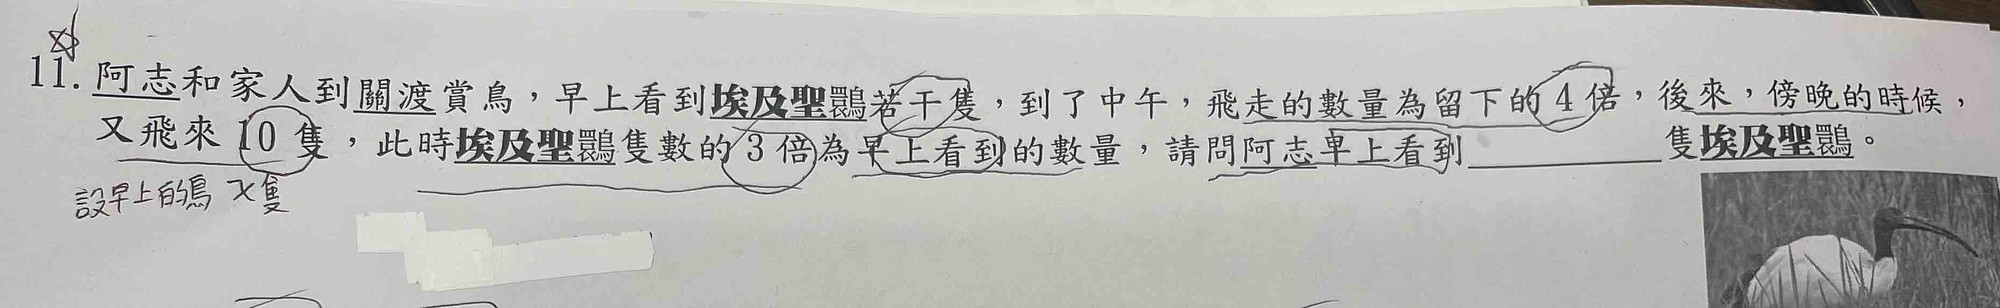 11. 阿志和家人到關渡賞鳥，早上看到埃及聖鹮若干隻，到了中午，飛走的數量為留下的 4 倍，後來，傍晚的時候，
又飛來 10 隻，此時埃及聖鹮隻數的 3 倍為早上看到的數量，請問阿志早上看到＿＿＿＿＿隻埃及聖鹮。
設早上的鳥 x隻